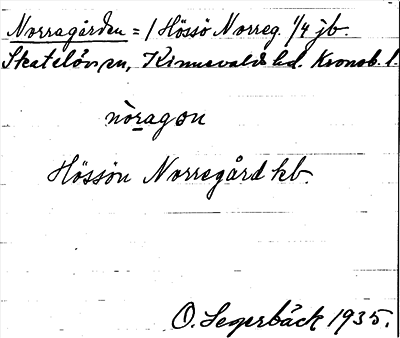 Norragården = / Hössö Norreg. 1/4 jb.
Skatelövs sn, Kinnevalds hd. Kronob. l.
nòragon
Hössön Norregård kb.
O. Segerbäck 1935.